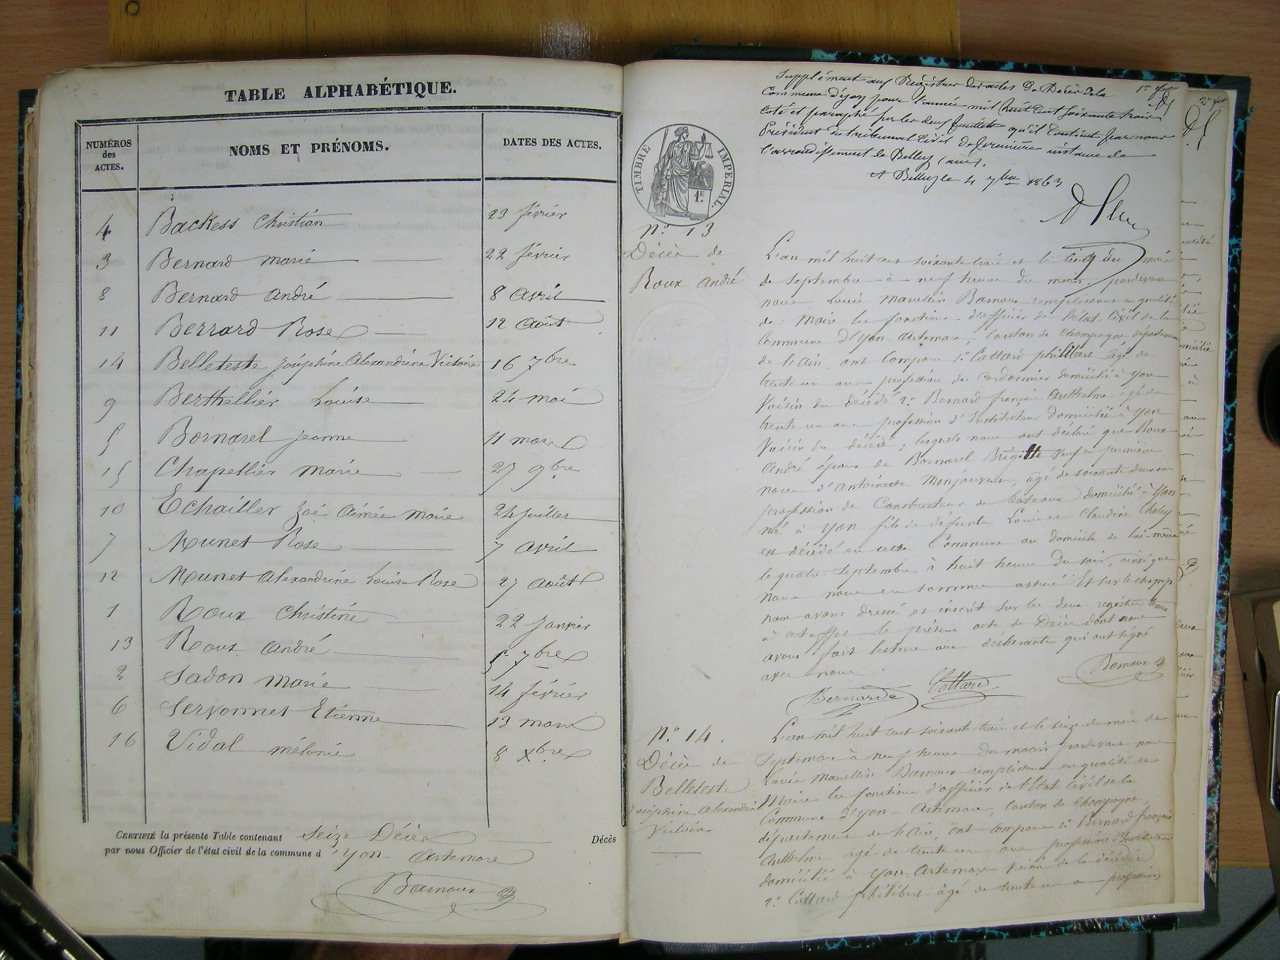 TABLE ALPHABÉTIQUE.
NUMÉROS des ACTES.
NOMS ET PRÉNOMS.
DATES DES ACTES.
4 Backess Christian 23 février
3 Bernard Marie 22 février
8 Bernard André 8 avril
11 Berrard Rose 12 Août
14 Belleteste Joséphine Alexandrine Victoire 16 7bre
9 Berthellier Louise 24 mai
5 Bornarel Jeanne 11 mars
15 Chapellier Marie 27 9bre
10 Echailler Zoé Aimée Marie 24 Juillet
7 Munet Rose 7 avril
12 Munet Alexandrine Louise Rose 27 Août
1 Roux Christine 22 Janvier
13 Roux André 5 7bre
2 Sadon Marie 14 février
6 Servonnet Etienne 13 mars
16 Vidal Mélanie 8 Xbre
CERTIFIÉ la présente Table contenant Seize Décès Décès
par nous Officier de l'état civil de la commune d'Yon Artemare
Supplément au Registre des actes de Décès de la
commune d'Yon pour l'année mil huit cent soixante trois
Président du tribunal civil de première instance de
l'arrondissement de Belley
A Belley le 4 7bre 1863
TIMBRE IMPÉRIAL
N° 13
Décès de
Roux André
L'an mil huit cent soixante trois et le cinq du mois
de Septembre à neuf heures du matin pardevant
de Maire les fonctions d'officier de l'état civil de la
commune d'Yon Artemare, canton de Champagne, département
de l'Ain, ont comparu 1° Cattard Philibert âgé de
trente un ans profession de cordonnier domicilié à Yon
voisin du décédé 2° Bernard françois Anthelme âgé de
trente un ans profession d'Instituteur domicilié à Yon
voisin du décédé; lesquels nous ont déclaré que Roux
André époux de Bornarel
profession de Constructeur de bateaux domicilié à Yon
né à Yon fils de défunts Louis et Claudine
est décédé en cette Commune au domicile de lui-même
le quatre Septembre à huit heures du soir, ainsi que
nous nous en sommes assuré. Et sur le champ
nous avons dressé et inscrit sur les deux registres
le présent acte de Décès dont nous
avons fait lecture aux déclarants qui ont signé
avec nous.
Bernard Cattard
N° 14.
Décès de
Belleteste
Joséphine Alexandrine
Victoire
L'an mil huit cent soixante trois et le seize du mois de
Septembre à neuf heures du matin pardevant nous
Maire les fonctions d'officier de l'Etat civil de la
Commune d'Yon Artemare, canton de Champagne,
département de l'Ain, ont comparu 1° Bernard françois
Anthelme âgé de trente un ans profession d'Instituteur
domicilié à Yon-Artemare voisin de la décédée
2° Cattard Philibert âgé de trente un ans profession